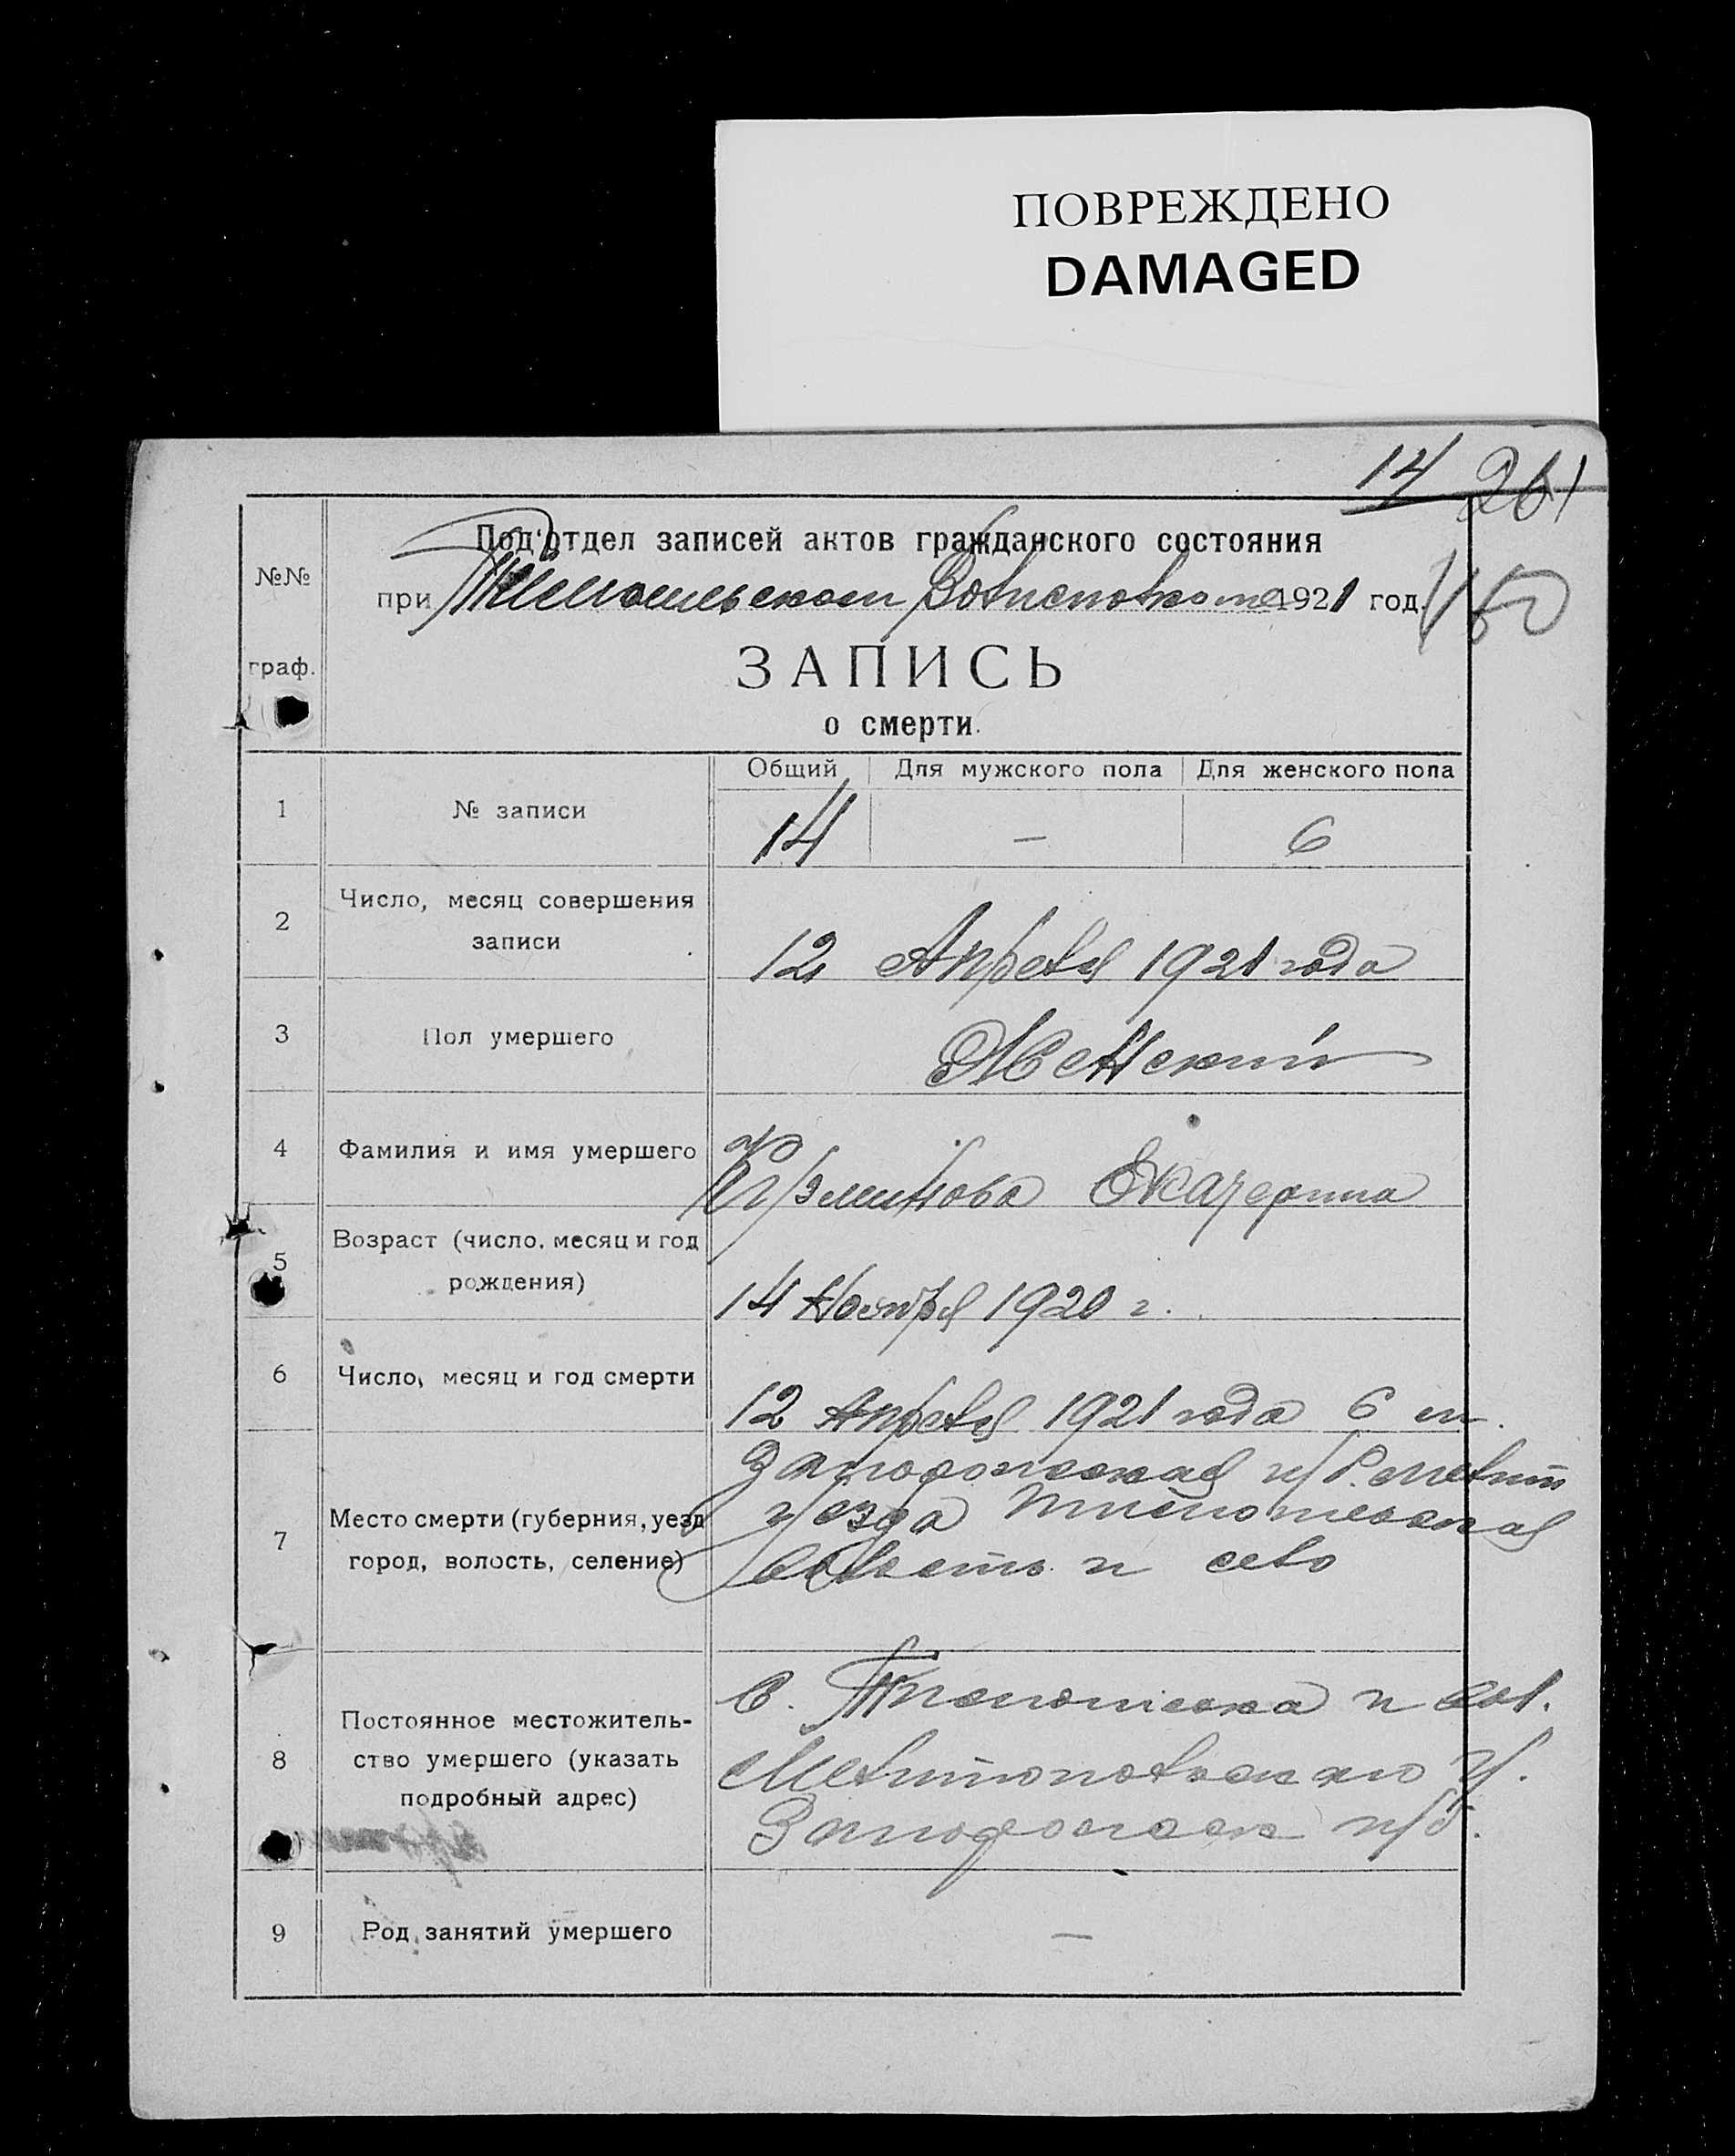 ПОВРЕЖДЕНО
DAMAGED
14 261
Под'отдел записей актов гражданского состояния
№№
при 1921 год.
150
граф.
ЗАПИСЬ
о смерти.
Общий Для мужского пола Для женского пола
1 № записи 14 — 6
2 Число, месяц совершения
записи 12 Апреля 1921 года
3 Пол умершего Женский
4 Фамилия и имя умершего Екатерина
5 Возраст (число, месяц и год
рождения) 14 Ноября 1920 г.
6 Число, месяц и год смерти 12 Апреля 1921 года 6 ч.
Запорожская губ. Мелит
7 Место смерти (губерния, уезд уезда
город, волость, селение) волость и село
С. и вол.
8 Постоянное местожитель-
ство умершего (указать Мелитопольского у.
подробный адрес) Запорожск губ.
9 Род занятий умершего —